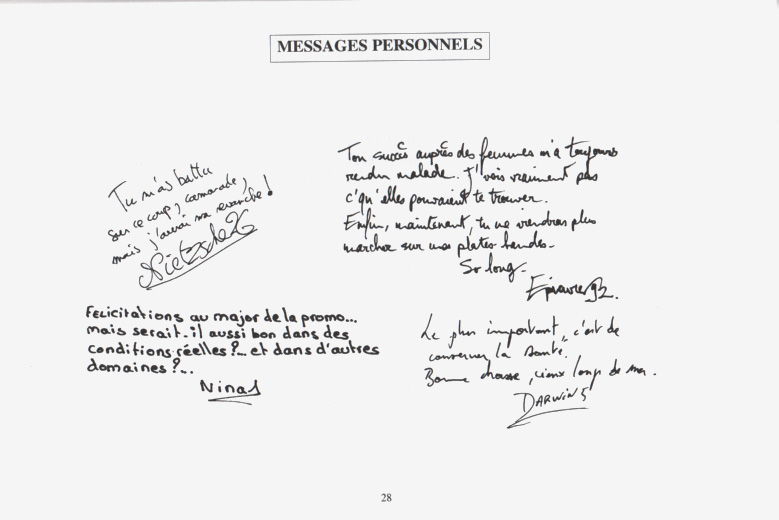 MESSAGES PERSONNELS
Tu m'as battu
sur ce coup, camarade,
mais j'aurai ma revanche !
Ton succès auprès des femmes m'a toujours
rendu malade. J'vois vraiment pas
c'qu'elles pouvaient te trouver.
Enfin, maintenant, tu ne viendras plus
marcher sur mes plates bandes.
So long.
Epicure 92.
FELICITATIONS au major de la promo...
mais serait-il aussi bon dans des
conditions réelles ?... et dans d'autres
domaines ?...
Nina
Le plus important, c'est de
conserver la santé.
Bonne chasse, vieux loup de mer.
DARWIN 5
28